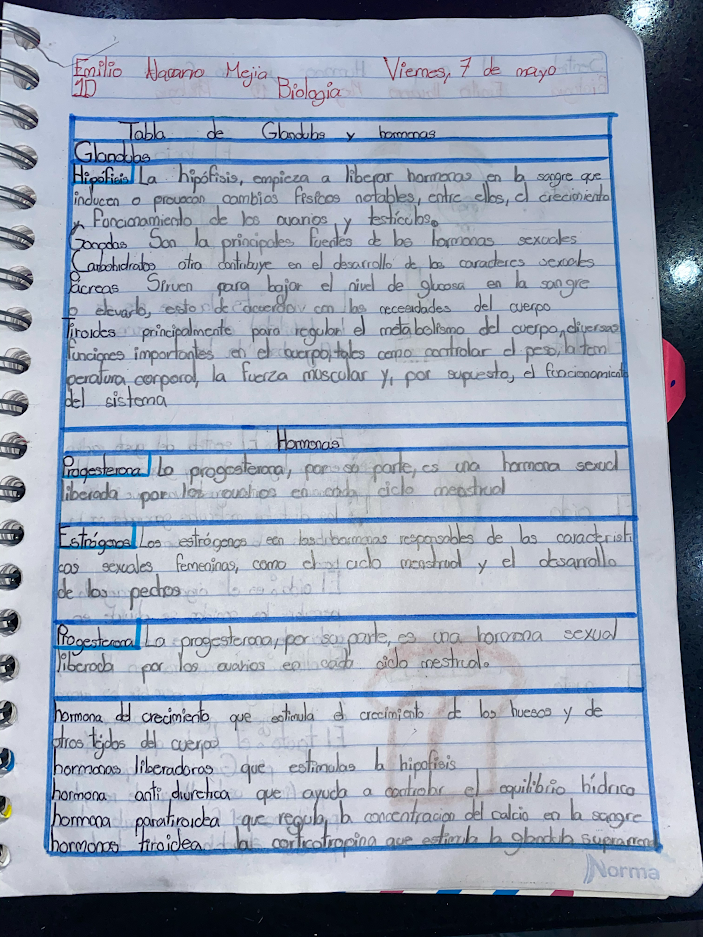 Emilio Navarro Mejia Viernes, 7 de mayo
1D Biología
Tabla de Glandulas y hormonas
Glandulas
Hipófisis La hipófisis, empieza a liberar hormonas en la sangre que
inducen o provocan cambios físicos notables, entre ellos, el crecimiento
y Foncionamiento de los ovarios y testículos.
Gonodas Son la principales fuentes de las hormonas sexuales
Carbohidratos otra contribuye en el desarrollo de los caracteres sexuales
Pácreas Sirven para bajar el nivel de glucosa en la sangre
o elevarlo, esto de acuerdo con las necesidades del cuerpo
Tiroides principalmente para regular el metabolismo del cuerpo, diversas
funciones importantes en el cuerpo, tales como controlar el peso, la tem
peratura corporal, la fuerza muscular y, por supuesto, el funcionamiento
del sistema
Hormonas
Progesterona La progesterona, por so parte, es una hormona sexual
liberada por los ovarios en cada ciclo menstrual
Estrógenos Los estrógenos son las hormonas responsables de las característi
cas sexuales femeninas, como el ciclo menstrual y el desarrollo
de los pechos
Progesterona La progesterona, por so parte, es una hormona sexual
liberada por los ovarios en cada ciclo mestrual.
hormona del crecimiento que estimula el crecimiento de los huesos y de
otros tejidos del cuerpo
hormonas liberadoras que estimulas la hipofisis
hormona anti diuretica que ayuda a controlar el equilibrio hídrico
hormona paratiroidea que regula la concentracion del calcio en la sangre
hormonas tiroidea la corticotropina que estimula la glandula suprarrenal
Norma